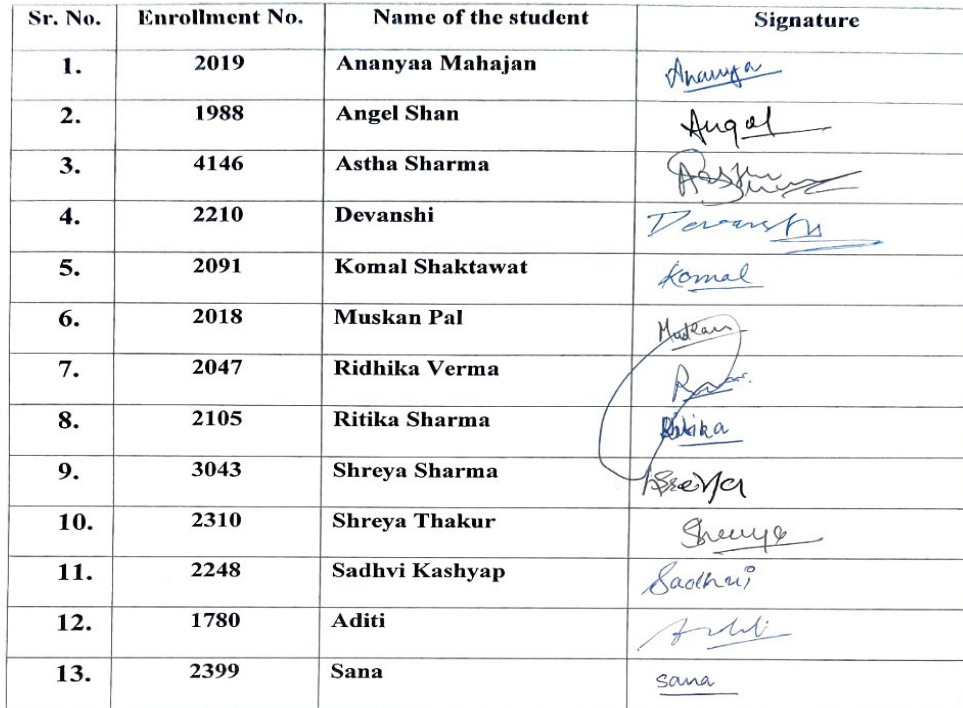 Sr. No. Enrollment No. Name of the student Signature
1. 2019 Ananyaa Mahajan Ananya
2. 1988 Angel Shan Angel
3. 4146 Astha Sharma
4. 2210 Devanshi Devanshi
5. 2091 Komal Shaktawat Komal
6. 2018 Muskan Pal Muskan
7. 2047 Ridhika Verma
8. 2105 Ritika Sharma Ritika
9. 3043 Shreya Sharma
10. 2310 Shreya Thakur Shreya
11. 2248 Sadhvi Kashyap Sadhvi
12. 1780 Aditi Aditi
13. 2399 Sana sana